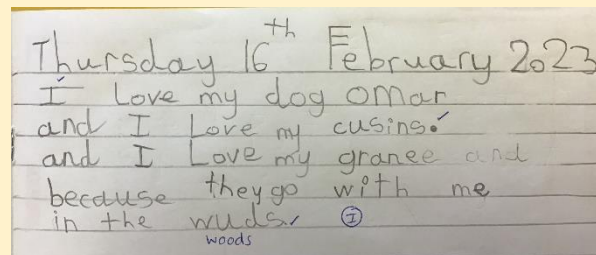 Thursday 16th February 2023
I Love my dog omar
and I Love my cusins.
and I Love my granee and
because they go with me
in the wuds. I
woods